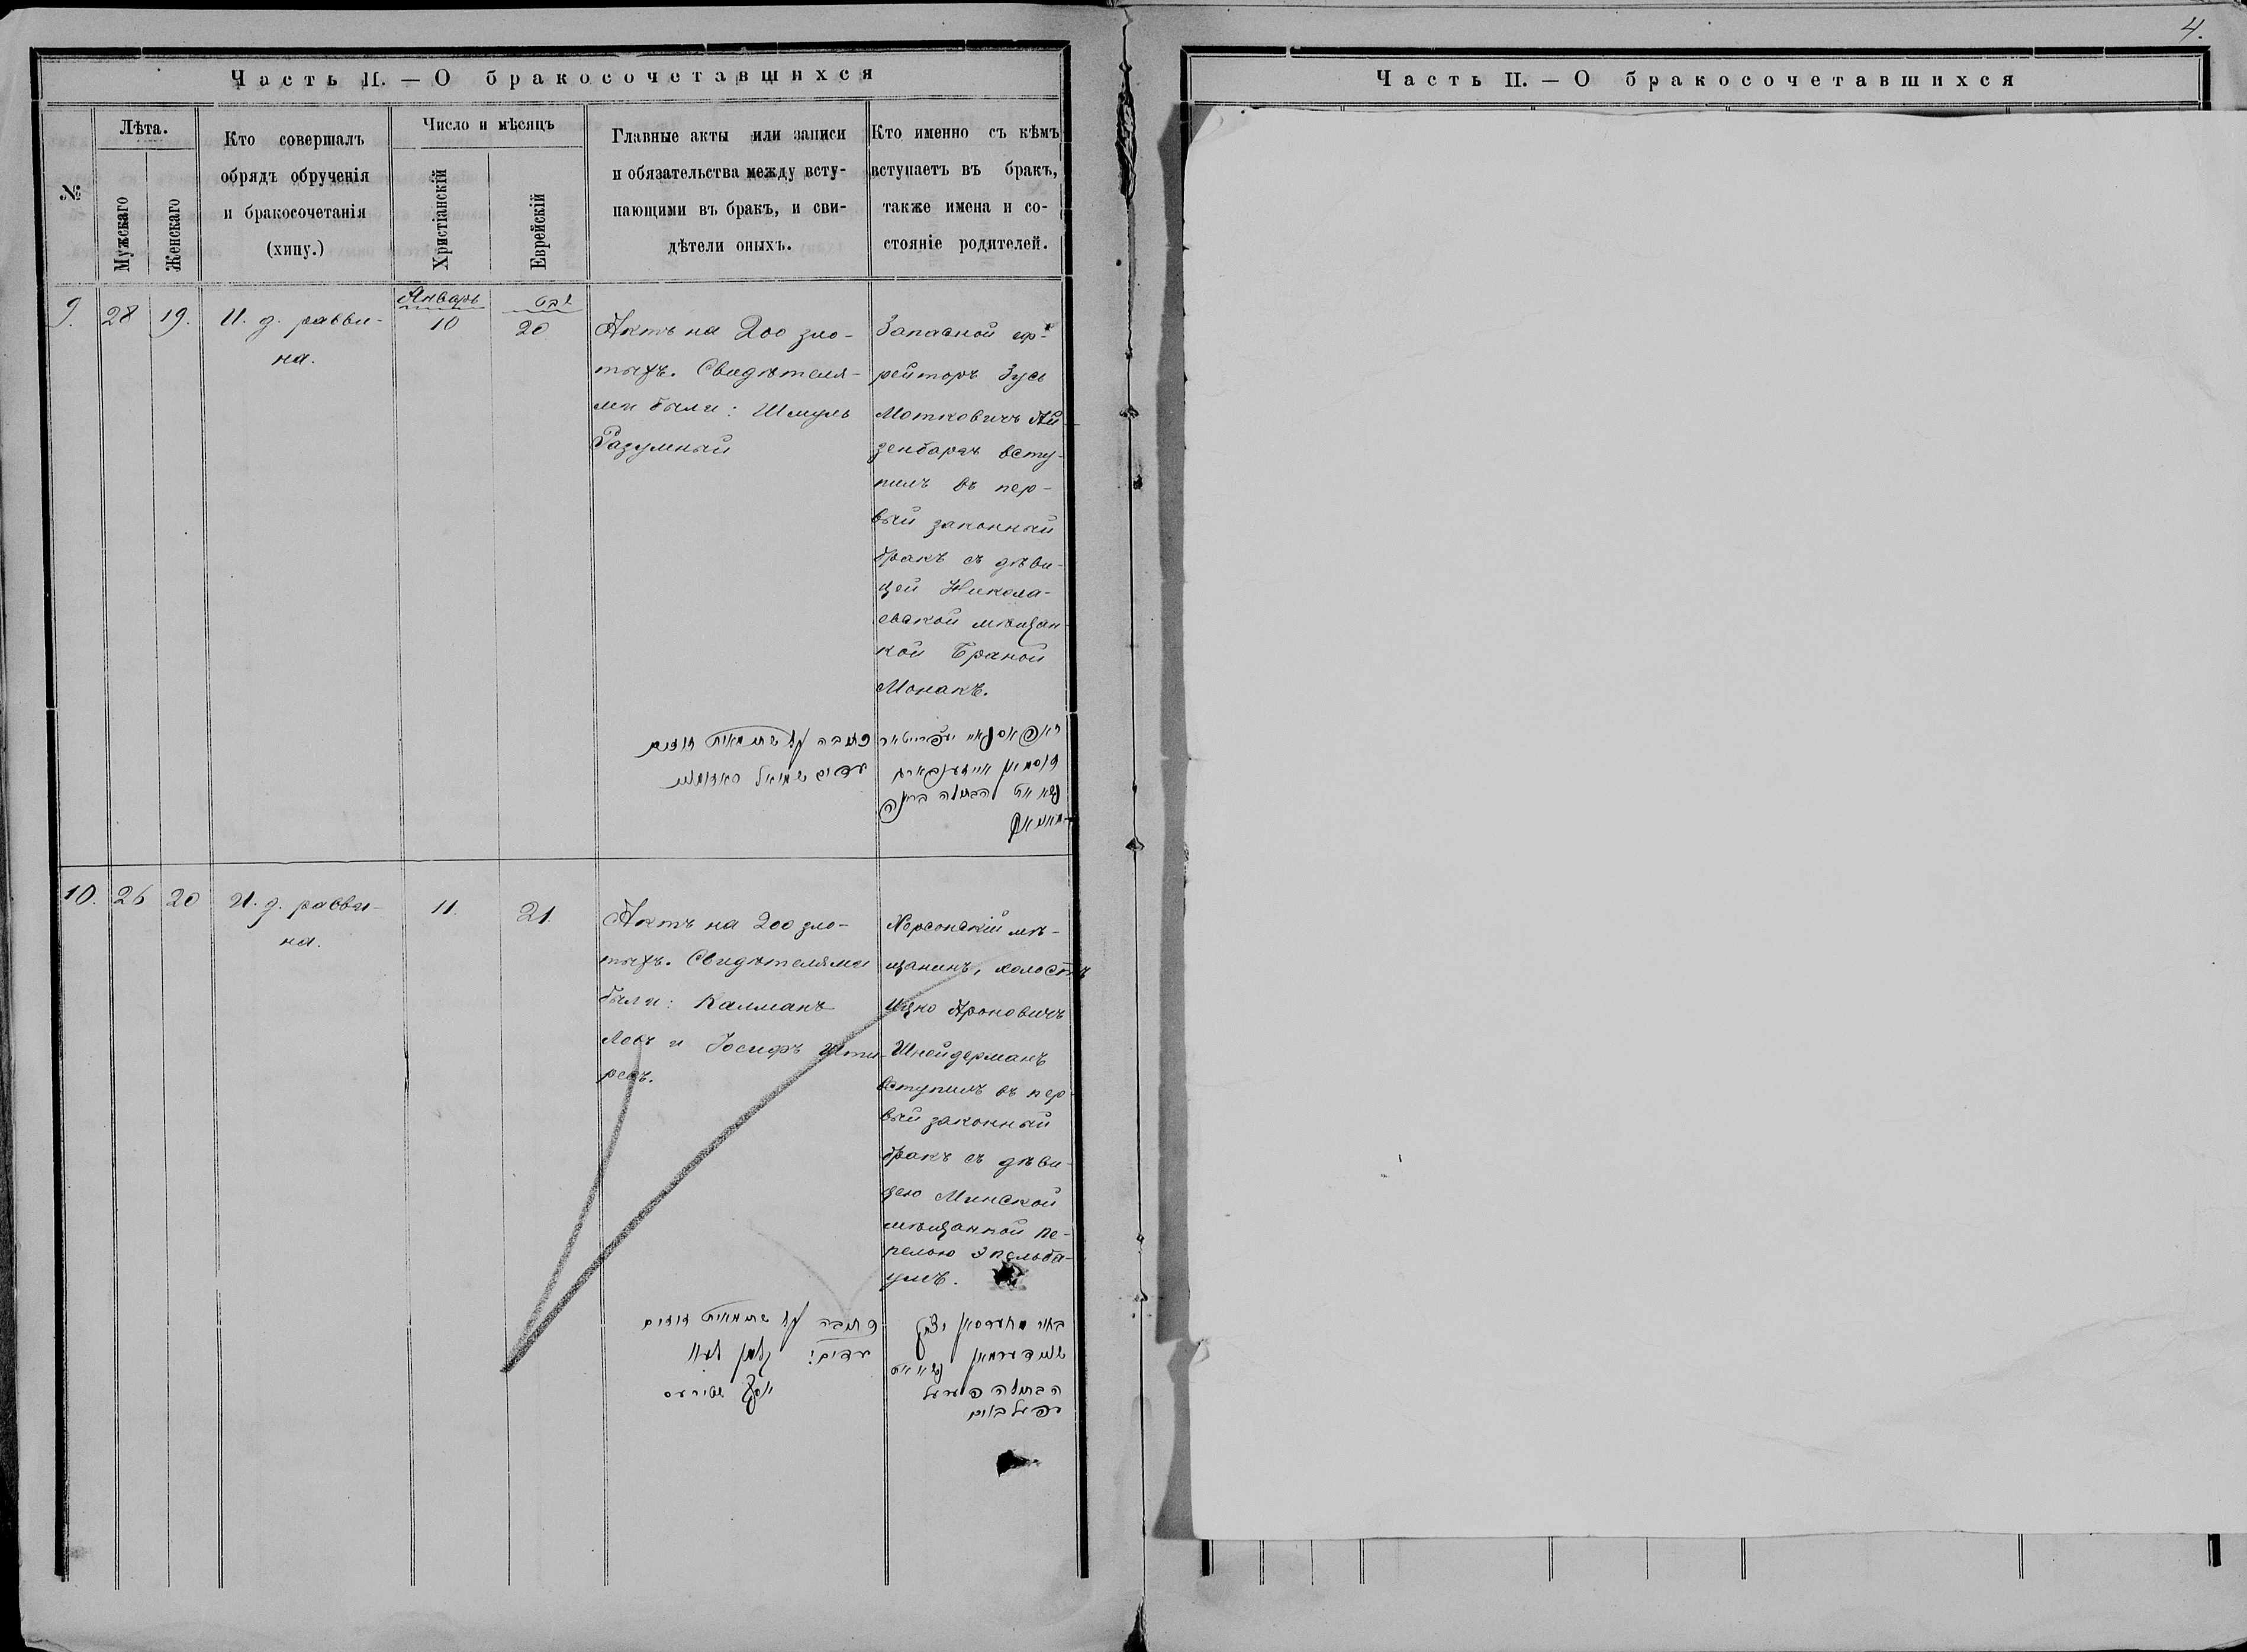 4.
Часть II. — О бракосочетавшихся
№
Лѣта.
Мужскаго
Женскаго
Кто совершалъ
обрядъ обрученія
и бракосочетанія
(хипу.)
Число и мѣсяцъ
Христіанскій
Еврейскій
Главные акты или записи
и обязательства между всту-
пающими въ бракъ, и сви-
дѣтели оныхъ.
Кто именно съ кѣмъ
вступаетъ въ бракъ,
также имена и со-
стояніе родителей.
9.
28
19.
И. д. равви-
на.
Январь
10
טבת
20
Актъ на 200 зло-
тыхъ. Свидѣтеля-
ми были: Шмуль
Разумный
Запасной еф-
рейторъ Зусь
Мотковичъ Ай-
зенбаргъ всту-
пилъ въ пер-
вый законный
бракъ съ дѣви-
цей Никола-
евской мѣщан-
кой Браной
Монакъ.
כתובה על שתי מאות זהובים
עדים שמואל
הבתולה
10.
26
20
И. д. равви-
на.
11.
21.
Актъ на 200 зло-
тыхъ. Свидѣтелями
были: Калманъ
Левъ и Іосифъ Шпи-
ресъ.
Херсонскій мѣ-
щанинъ, холостъ
Ицко Ароновичъ
Шнейдерманъ
вступилъ въ пер-
вый законный
бракъ съ дѣви-
цею Минской
мѣщанкой Пе-
релью Эпельба-
умъ.
כתובה על שתי מאות זהובים
עדים: קלמן לעוו
יוסף שפירעס
יצחק
שניידערמאן
הבתולה פערעל
עפעלבוים
Часть II. — О бракосочетавшихся